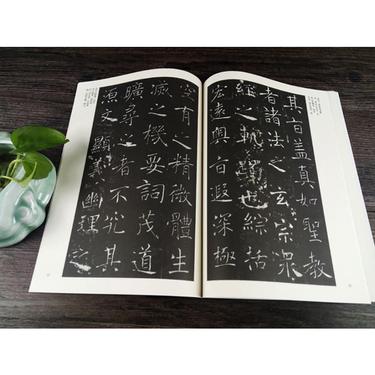 其旨蓋真如聖教
者諸法之玄宗眾
經之軌躅也綜括
宏遠奧旨遐深極
空有之精微體生
滅之機要詞茂道
曠尋之者不究其
源文顯義幽理之